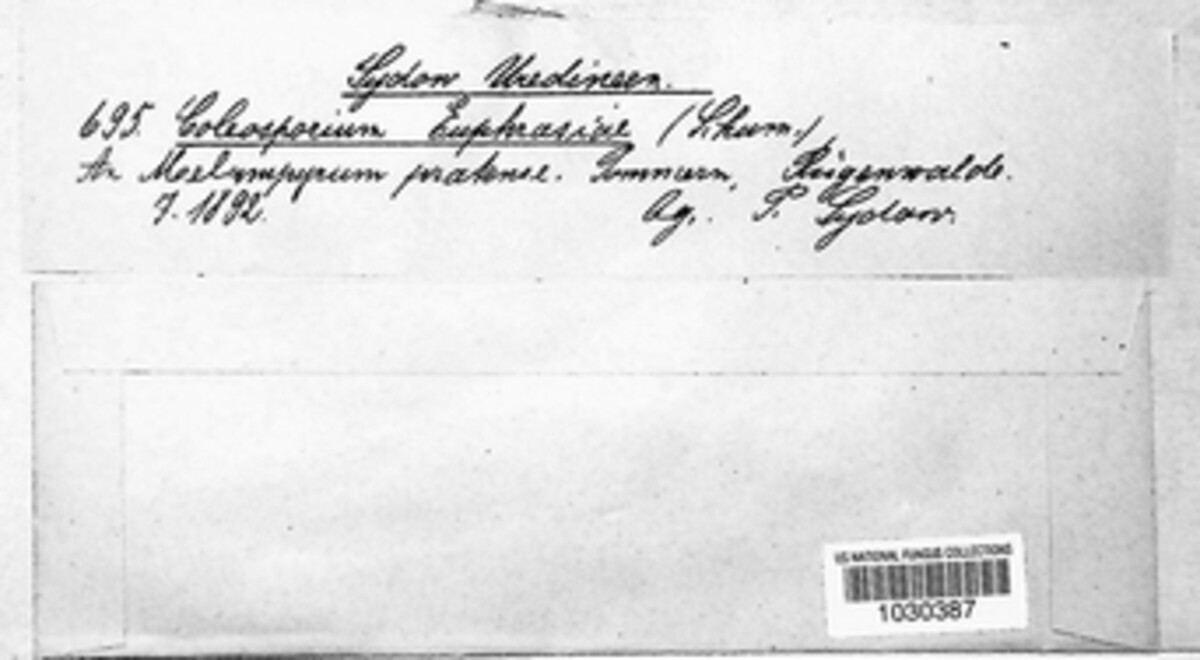 Sydow Uredineen.
695. Coleosporium Euphrasiae (Schum.)
An Melampyrum pratense. Pommern, Rügenwalde.
7. 1892. lg. P. Sydow.
US NATIONAL FUNGUS COLLECTIONS
1030387